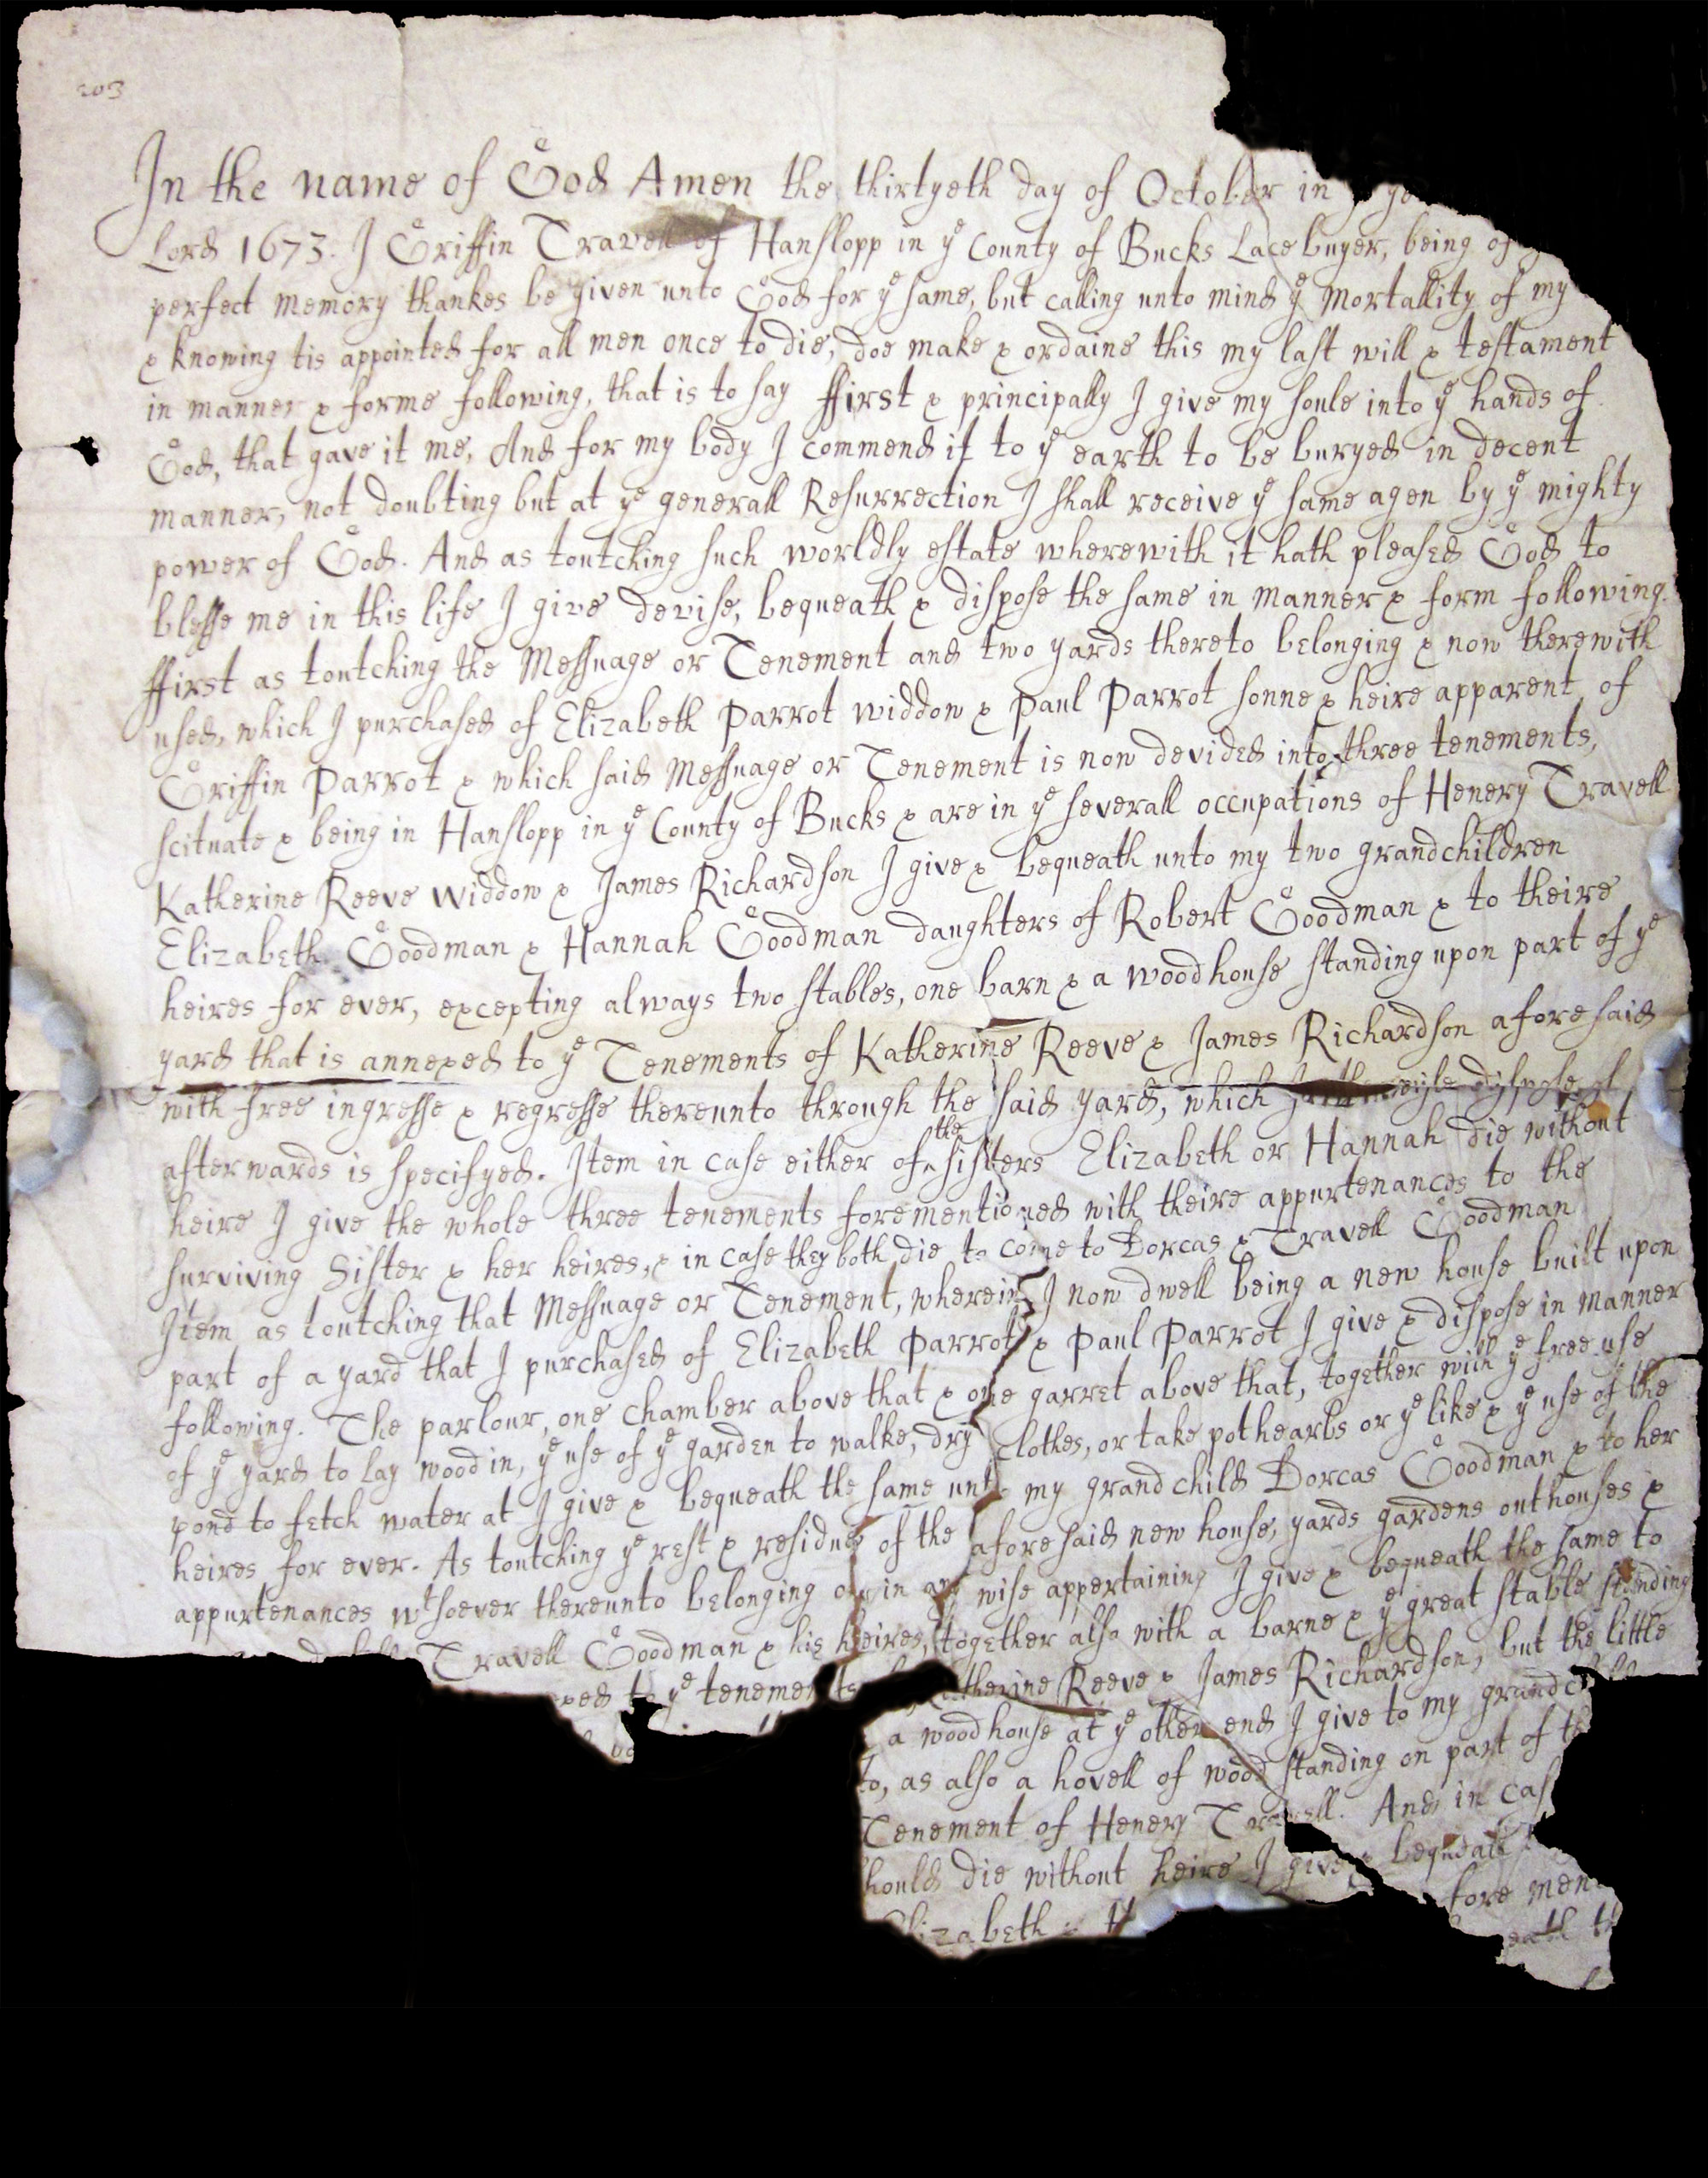 203
In the name of God Amen the thirtyeth day of October in
Lord 1673. I Griffin Travell of Hanslopp in ye County of Bucks Lace buyer, being of
perfect memory thankes be given unto God for ye same, but calling unto mind ye Mortallity of my
& knowing tis appointed for all men once to die, doe make & ordaine this my last will & testament
in manner & forme following, that is to say ffirst & principally I give my soule into ye hands of
God, that gave it me, And for my body I commend it to ye earth to be buryed in decent
manner, not doubting but at ye generall Resurrection I shall receive ye same agen by ye mighty
power of God. And as toutching such worldly estate wherewith it hath pleased God to
blesse me in this life I give devise, bequeath & dispose the same in manner & form following.
ffirst as toutching the Messuage or Tenement and two yards thereto belonging & now therewith
used, which I purchased of Elizabeth Parrot widdow & Paul Parrot sonne & heire apparent of
Griffin Parrot & which said Messuage or Tenement is now devided into three tenements,
scituate & being in Hanslopp in ye County of Bucks & are in ye severall occupations of Henery Travell
Katherine Reeve widdow & James Richardson I give & bequeath unto my two grandchildren
Elizabeth Goodman & Hannah Goodman daughters of Robert Goodman & to theire
heires for ever, excepting always two stables, one barn & a woodhouse standing upon part of ye
yard that is annexed to ye Tenements of Katherine Reeve & James Richardson aforesaid
with free ingresse & regresse thereunto through the said yard, which dispose of
afterwards is specifyed. Item in case either of the sisters Elizabeth or Hannah die without
heire I give the whole three tenements forementioned with theire appurtenances to the
surviving Sister & her heires, & in case they both die to come to Dorcas & Travell Goodman
Item as toutching that Messuage or Tenement, wherein I now dwell being a new house built upon
part of a yard that I purchased of Elizabeth Parrot & Paul Parrot I give & dispose in manner
following. The parlour, one chamber above that & one garret above that, together with ye free use
of ye yard to lay wood in, ye use of ye garden to walke, dry Clothes, or take pothearbs or ye like & ye use of the
pond to fetch water at I give & bequeath the same unto my grandchild Dorcas Goodman & to her
heires for ever. As toutching ye rest & residue of the aforesaid new house, yards gardens outhouses &
appurtenances wtsoever thereunto belonging or in any wise appertaining I give & bequeath the same to
Travell Goodman & his heires, together also with a barne & ye great stable standing
to ye tenements Katherine Reeve & James Richardson, but the little
a woodhouse at ye other end I give to my
to, as also a hovell of wood standing on part of
Tenement of Henery Travell. And in
die without heire I give & bequeath
Elizabeth &